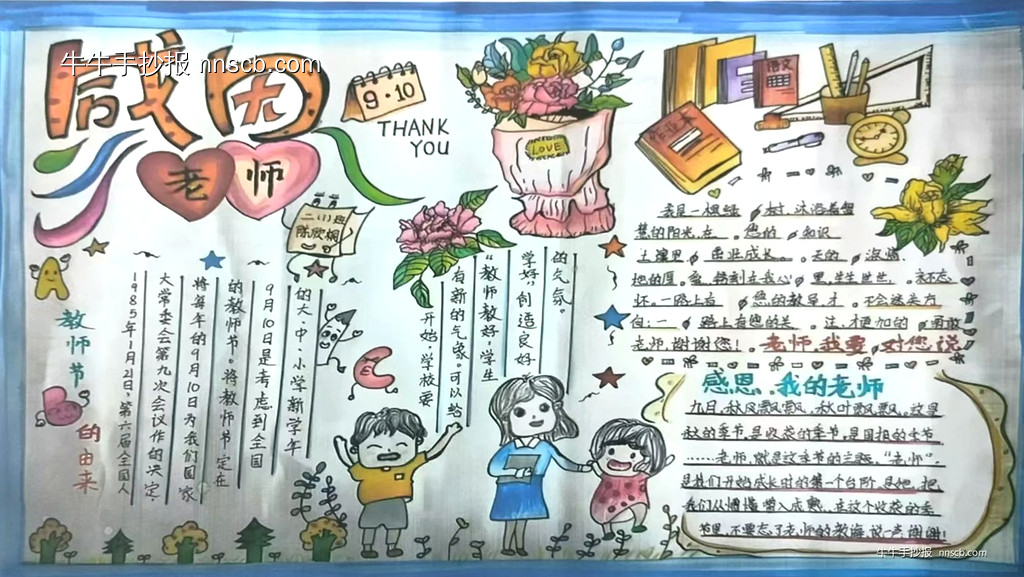 感恩
老师
牛牛手抄报 nnscb.com
9·10
THANK
YOU
LOVE
语文
作业本
二(1)班
陈欣桐
教师节
的由来
1985年1月21日,第六届全国人
大常委会第九次会议作的决定,
将每年的9月10日为我们国家
的教师节。将教师节定在
9月10日是考虑到全国
的大、中、小学新学年
开始,学校要
有新的气象。可以给
"教师教好,学生
学好"创造良好
的气氛。
我是一棵绿 树,沐浴着智
慧的阳光,在 您的 知识
土壤里 茁业成长。 天的 没情
把的厚 爱,铸刻在我心 里,生生世世, 永不忘
怀。一路上有 您的教导,才 不会迷失方
向;一 路上有您的关 注,才更加的 勇敢
老师,谢谢您! 老师,我要 对您说
感恩,我的老师
九月,秋风飘飘,秋叶飘飘。这是
秋的季节,是收获的季节,是
……老师,就是这季节的主题。"老师",
是我们开始成长时的第一个台阶,是她,把
我们从懵懂带入成熟。在这个收获的季
节里,不要忘了老师的教诲,说一声谢谢!
牛牛手抄报 nnscb.com